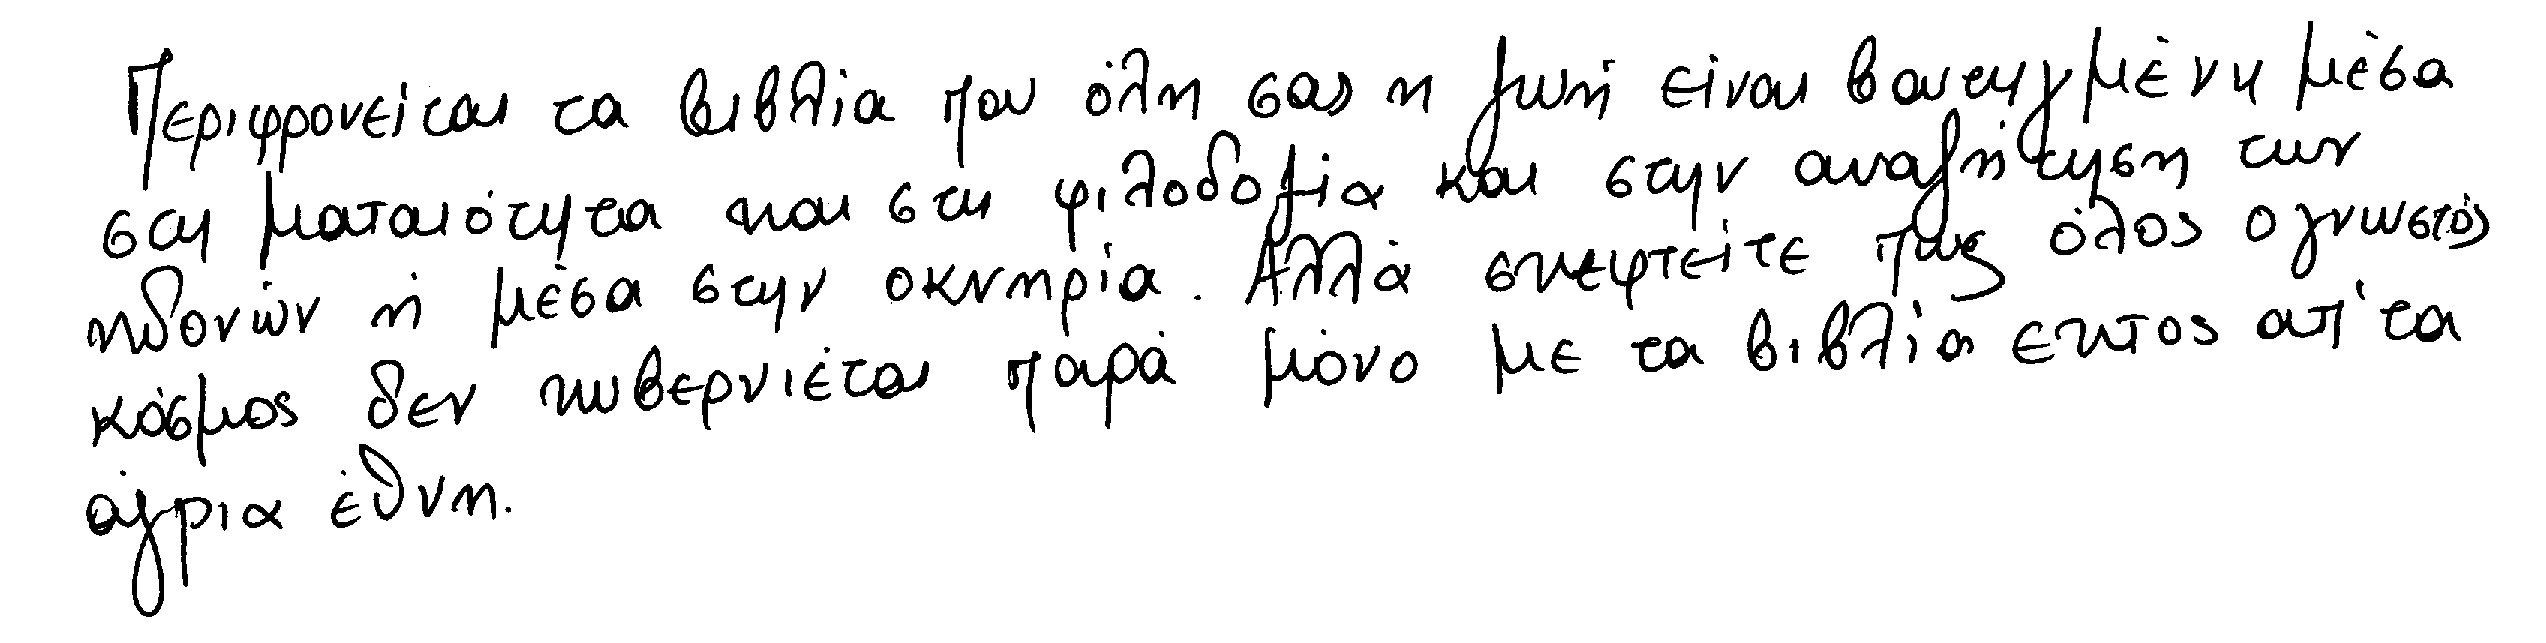 Περιφρονείται τα βιβλία που όλη σας η ζωή είναι βουτηγμένη μέσα
στη ματαιότητα και στη φιλοδοξία και στην αναζήτηση των
ηδονών ή μέσα στην οκνηρία. Αλλά σκεφτείτε πως όλος ο γνωστός
κόσμος δεν κυβερνιέται παρά μόνο με τα βιβλία εκτος απ' τα
άγρια έθνη.